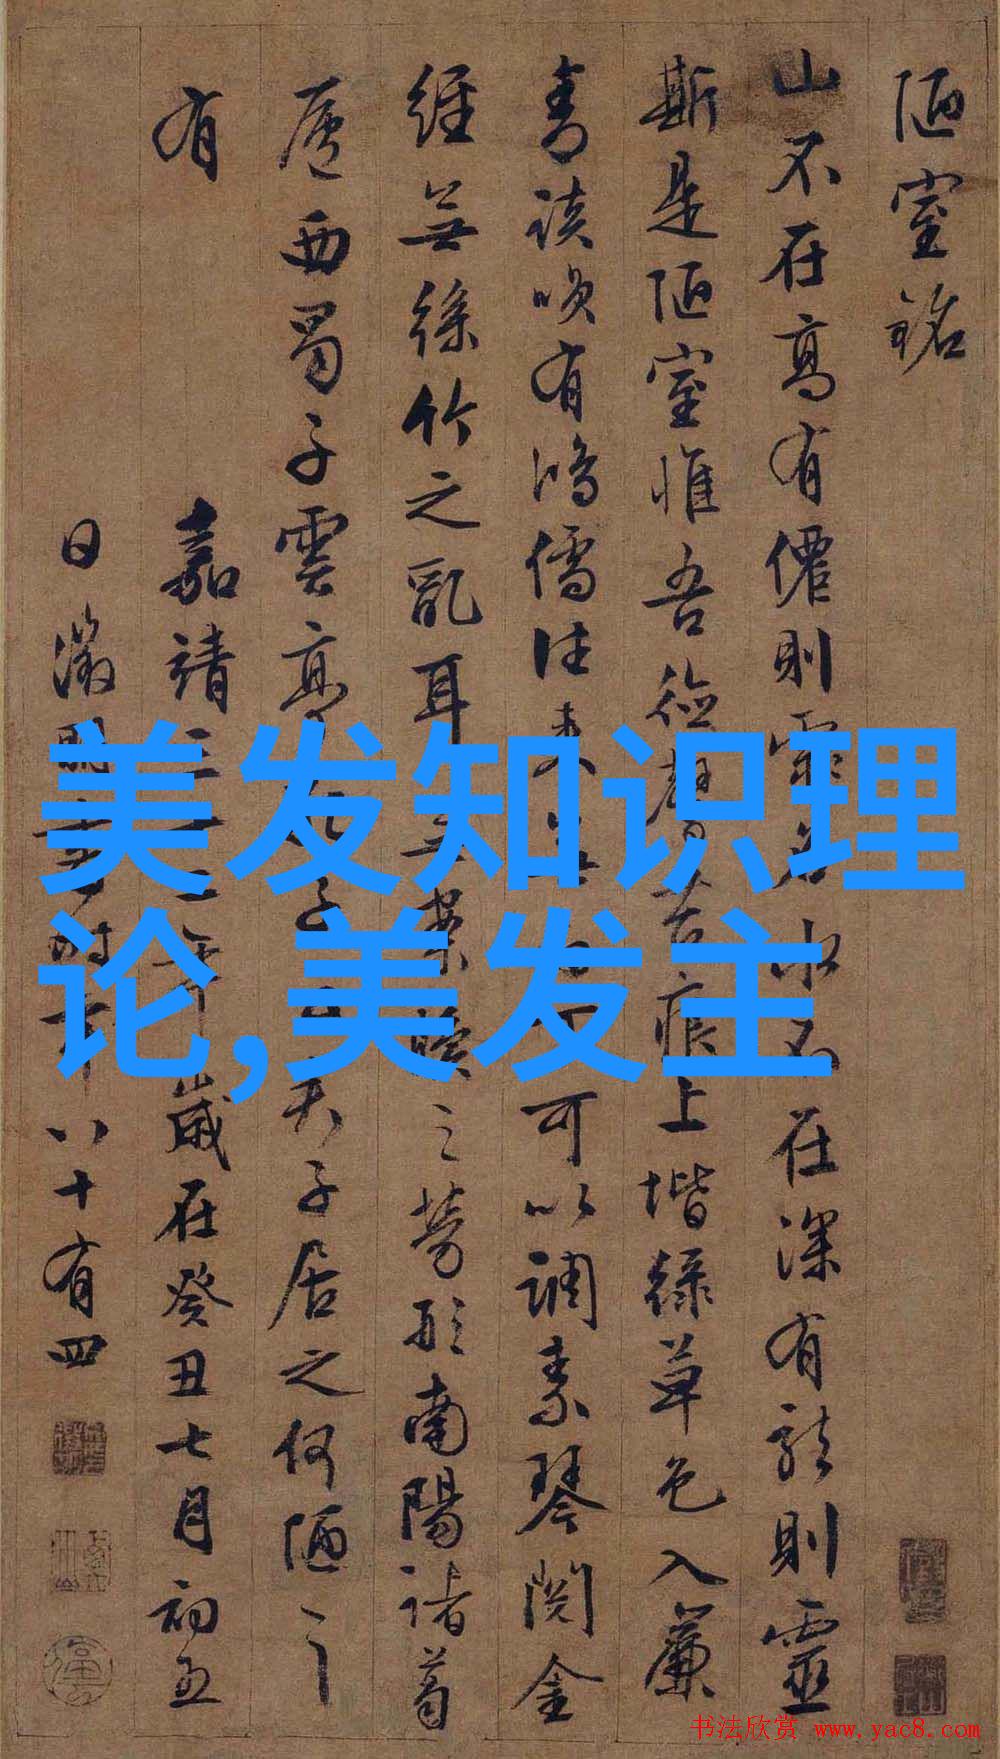 陋室銘
山不在高有僊則名水不在深有龍則靈
斯是陋室惟吾德馨苔痕上堦綠草色入簾
青談咲有鴻儒往来可以調素琴閱金
經無絲竹之亂耳無案牘之勞形南陽諸葛
廬西蜀子雲亭子居之何陋之
有
嘉靖三十二年歲在癸丑七月初五
日徵明書時年八十有四
美发知识理
论,美发主
书法欣赏 www.yac8.com